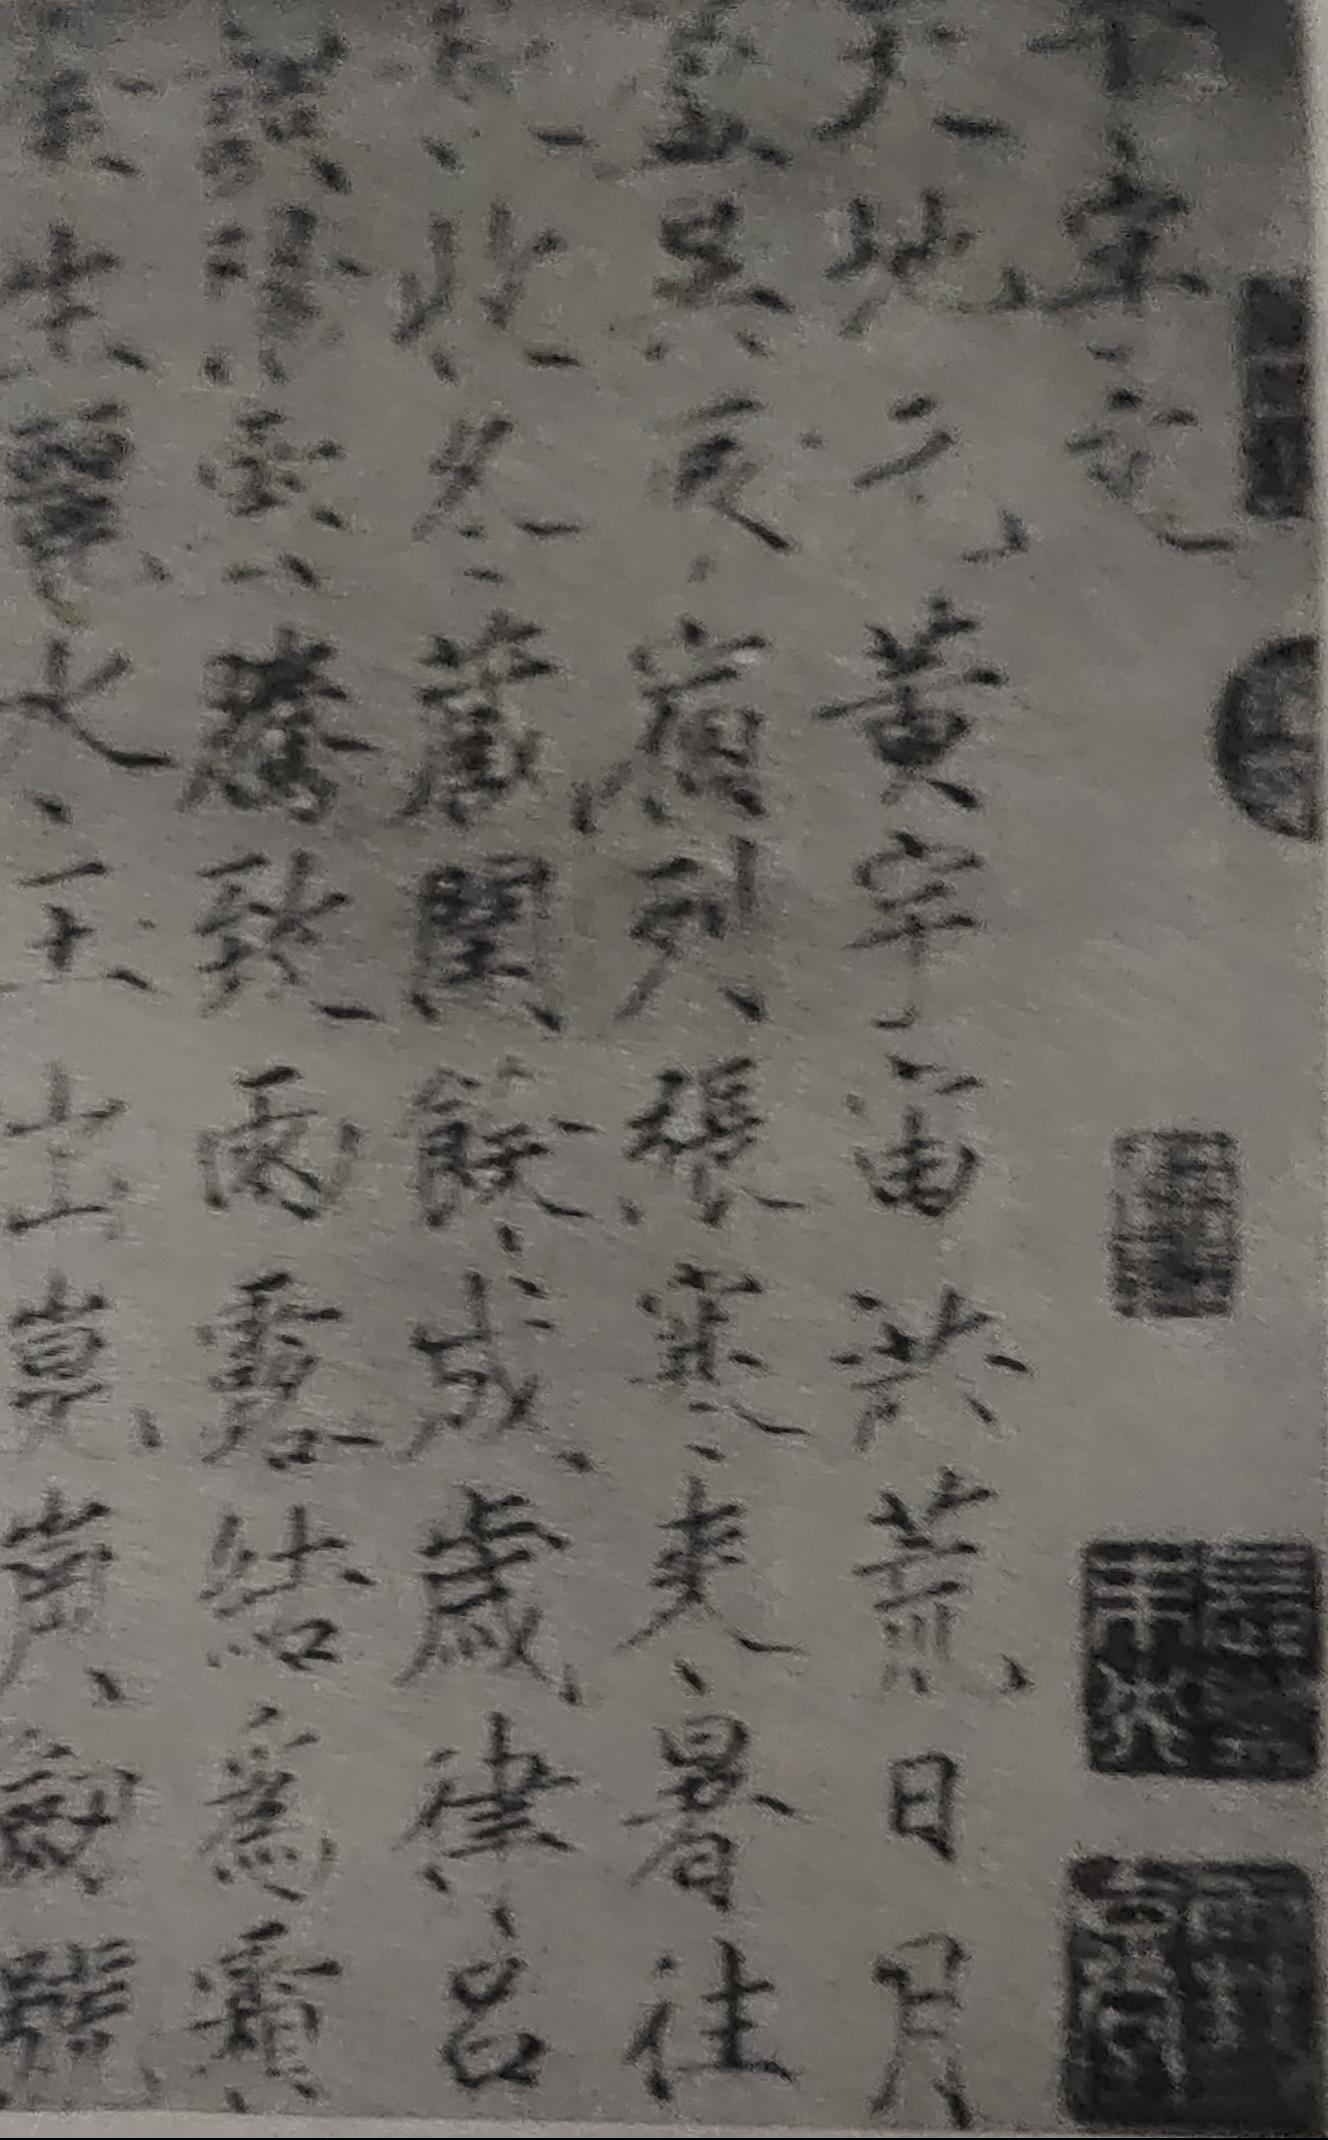 千字文
天地元黄宇宙洪荒日月
盈昃辰宿列張寒来暑往
秋收冬藏閏餘成歲律呂
調陽雲騰致雨露結為霜
金生麗水玉出崑崗劒號